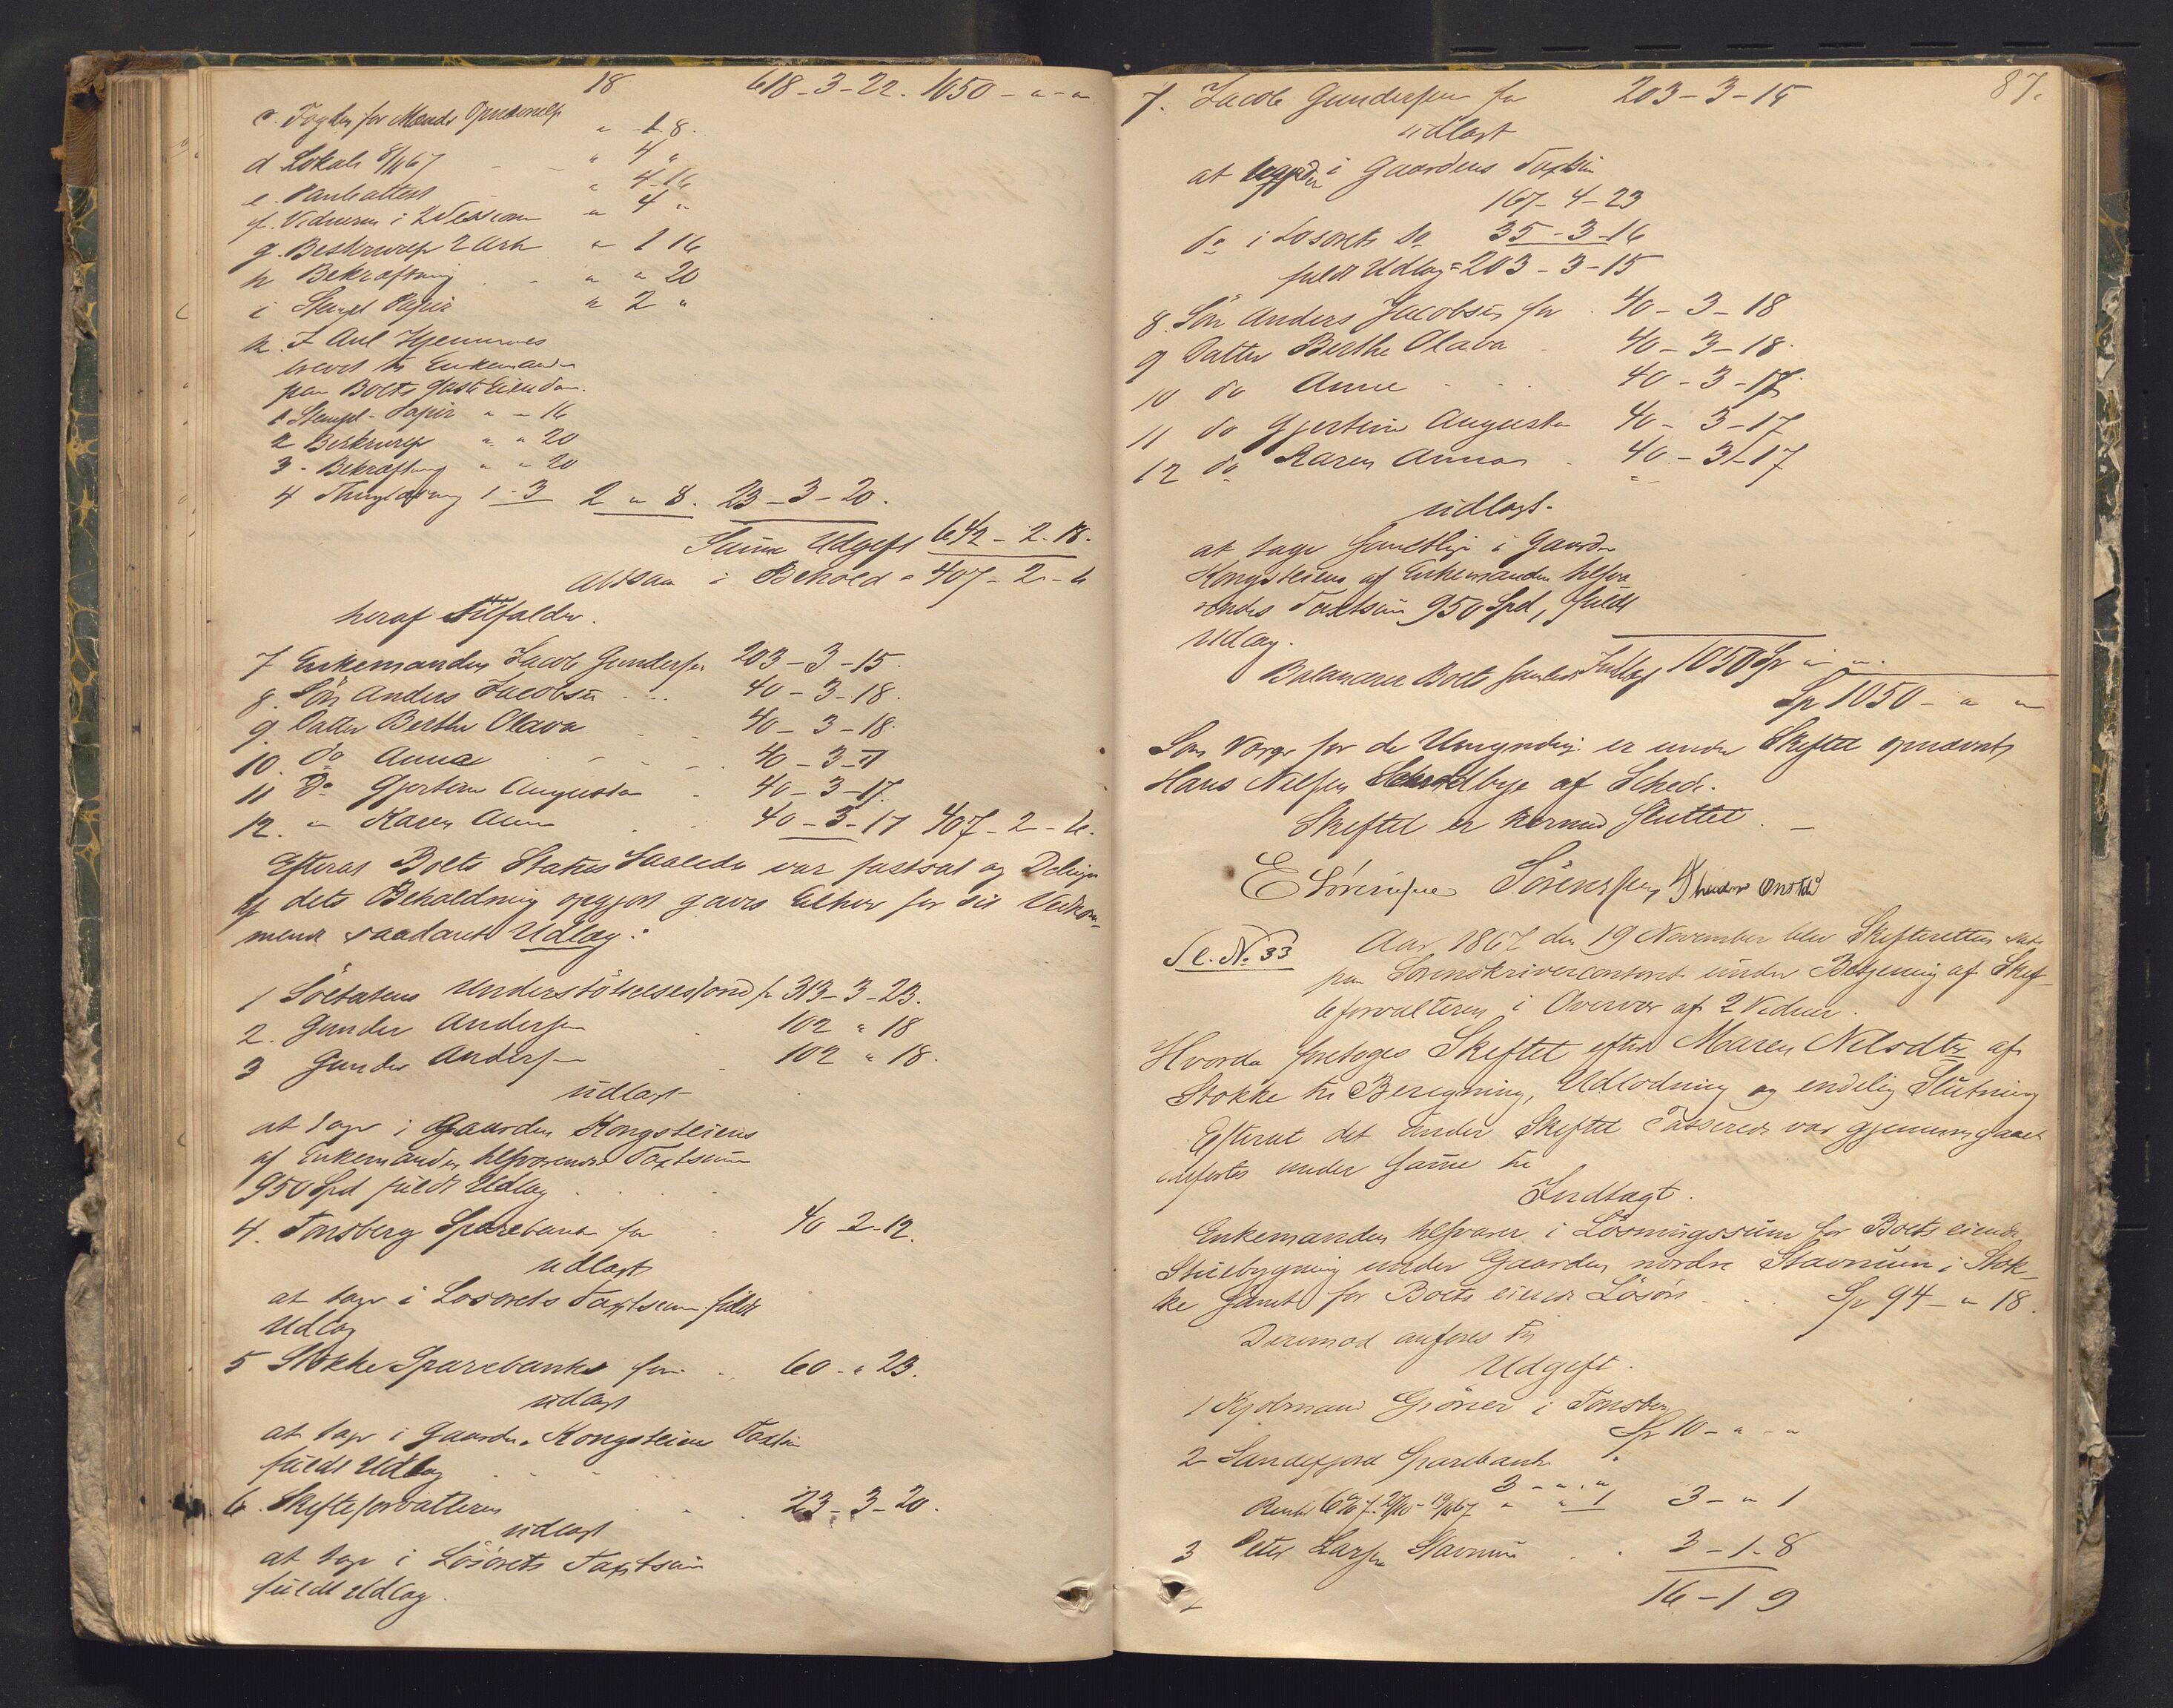 18 618-3-22. 1050 - " - "
c. Fogden for Mænds Opnævnelse " 1 8.
d Lokale 8/11 67 " 4 "
e. Panteattest " 4-16
f. Vidnerne i 2 Sessioner " 4 "
g. Beskrivelse 2 Ark " 1 16
h Bekræftning " " 20
i Stempl. Papir " 2 "
k. F Aul Hjemmels
brevet til Enkemanden
paa Boets faste Eiendom.
1 Stempl. Papir " - 16
2 Beskrivelse " " 20
3 - Bekræftning " " 20
4 Thinglæsning 1-3 2 " 8. 23-3-20.
Suma Udgift 642-2-18.
Altsaa i Behold = 407-2-6
heraf tilfalder.
7 Enkemanden Jacob Gundersen 203-3-15.
8. Søn Anders Jacobsen 40-3-18.
9. Datter Berthe Olava 40-3-18.
10. do Anna 40-3-17
11 do Gjertine Augusta 40-3-17.
12. " Karen Anna 40-3-17 407-2-6.
Efterat Boets Status saaledes var fastsat og Delingen
af dets Beholdning opgjort gaves Enhver for sit Vedkom-
mende saadant Udlæg:
1 Søetatens Understøttelsesfond fr 313-3-23.
2. Gunder Andersen 102 " 18
3 Gunder Andersen 102 " 18.
udlagt
at tage i Gaarden Kongsteiens
af Enkemanden tilsvarende Taxtsum
950 Spd fuldt Udlæg
4. Tønsberg Sparebank for 40-2-12.
udlagt
at tage i Løsørets Taxtsum fuldt
Udlæg
5 Stokke Sparebank for 60 - " 23.
udlagt
at tage i Gaarden Kongsteiens Taxtsum
fuldt Udlæg
6. Skifteforvalteren 23-3-20.
udlagt
at tage i Løsørets Taxtsum
fuldt Udlæg.
87.
7. Jacob Gundersen for 203-3-15
udlagt
at i Gaardens Taxtsum
167-4-23
do i Løsørets do 35-3-16
fuldt Udlæg = 203-3-15
8. Søn Anders Jacobsen for 40-3-18
9 Datter Berthe Olava 40-3-18.
10 do Anne 40-3-17.
11 do Gjertine Augusta 40-3-17
12 do Karen Anna 40-3-17
udlagt.
at tage samtlige i Gaarden
Kongsteiens af Enkemanden tilsva-
rendes Taxtsum 950 Spd, fuldt
Udlæg.
Balancerer Boets samlede Indtægt 1050 Sp " "
Sp 1050 - " "
Som Værge for de Umyndige er under Skiftet opnævnt
Hans Nilsen af Schede.
Skiftet er hermed sluttet. -
E Sørensen Sørensen,
Sl. No 33 Aar 1867 den 19 November blev Skifteretten sat
paa Sorenskrivercontoret under Betjening af Skif-
teforvalteren i Overvær af 2 Vidner.
Hvorda foretoges Skiftet efter Maren Nilsdtr af
Stokke til Beregning, Udlodning og endelig Slutning
Efterat det under Skiftet Passerede var gjennemgaaet
anførtes under samme til
Indtægt.
Enkemanden tilsvarer i Løsningssum for Boets eiende
Stuebygning under Gaarden nordre Stavnum i Stok-
ke samt for Boets eiende Løsøre Sp 94 - " 18.
Derimod anføres til
Udgift.
1 Kjøbmand Grøner i Tønsberg
Sp 10 - " - "
2 Sandefjord Sparebank
3 - " - "
Renter 6 % f. 27/10 - 19/11 67 " " 1 3 - " 1
3 Peter Larsen Stavnum 3-1-8
16-1 9